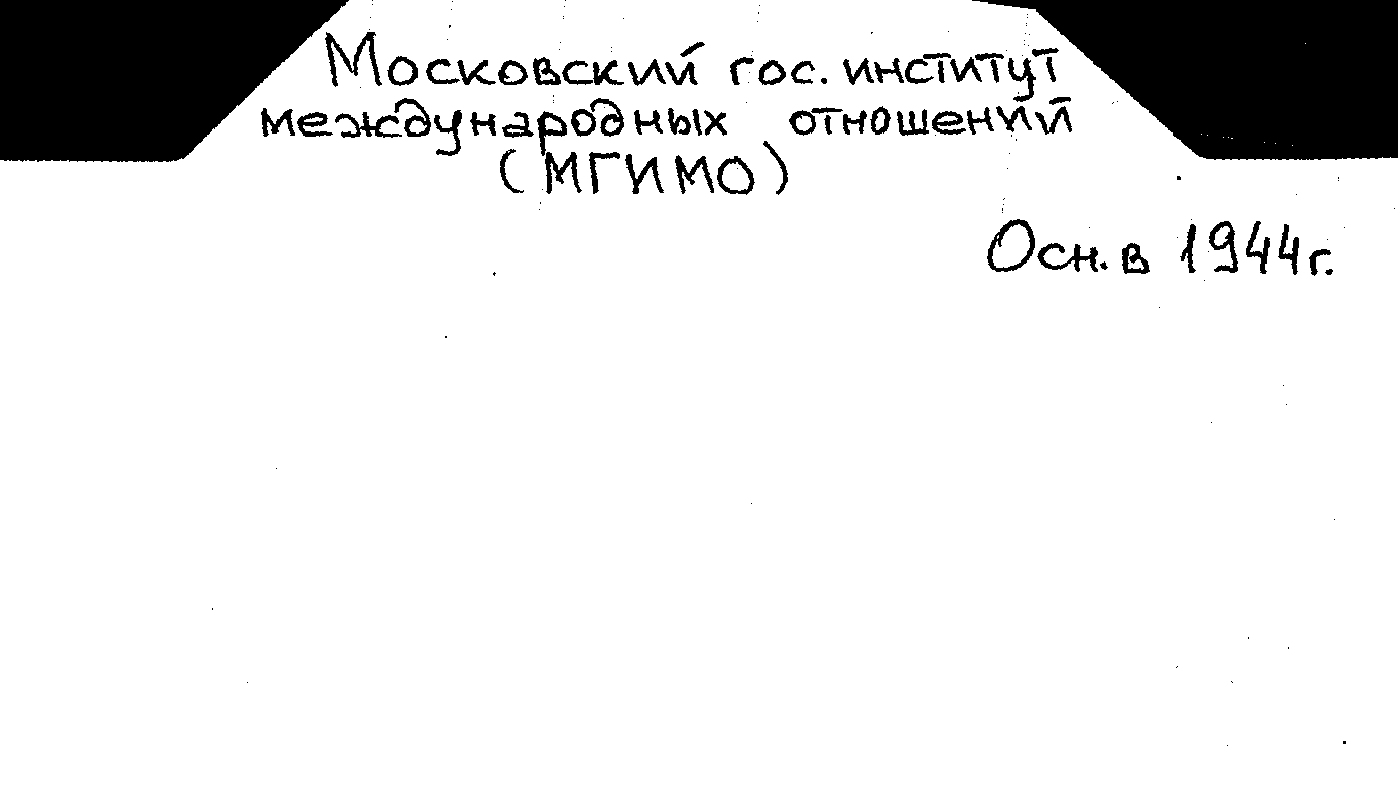 Московский гос. институт
международных отношений
(МГИМО)
Осн. в 1944г.